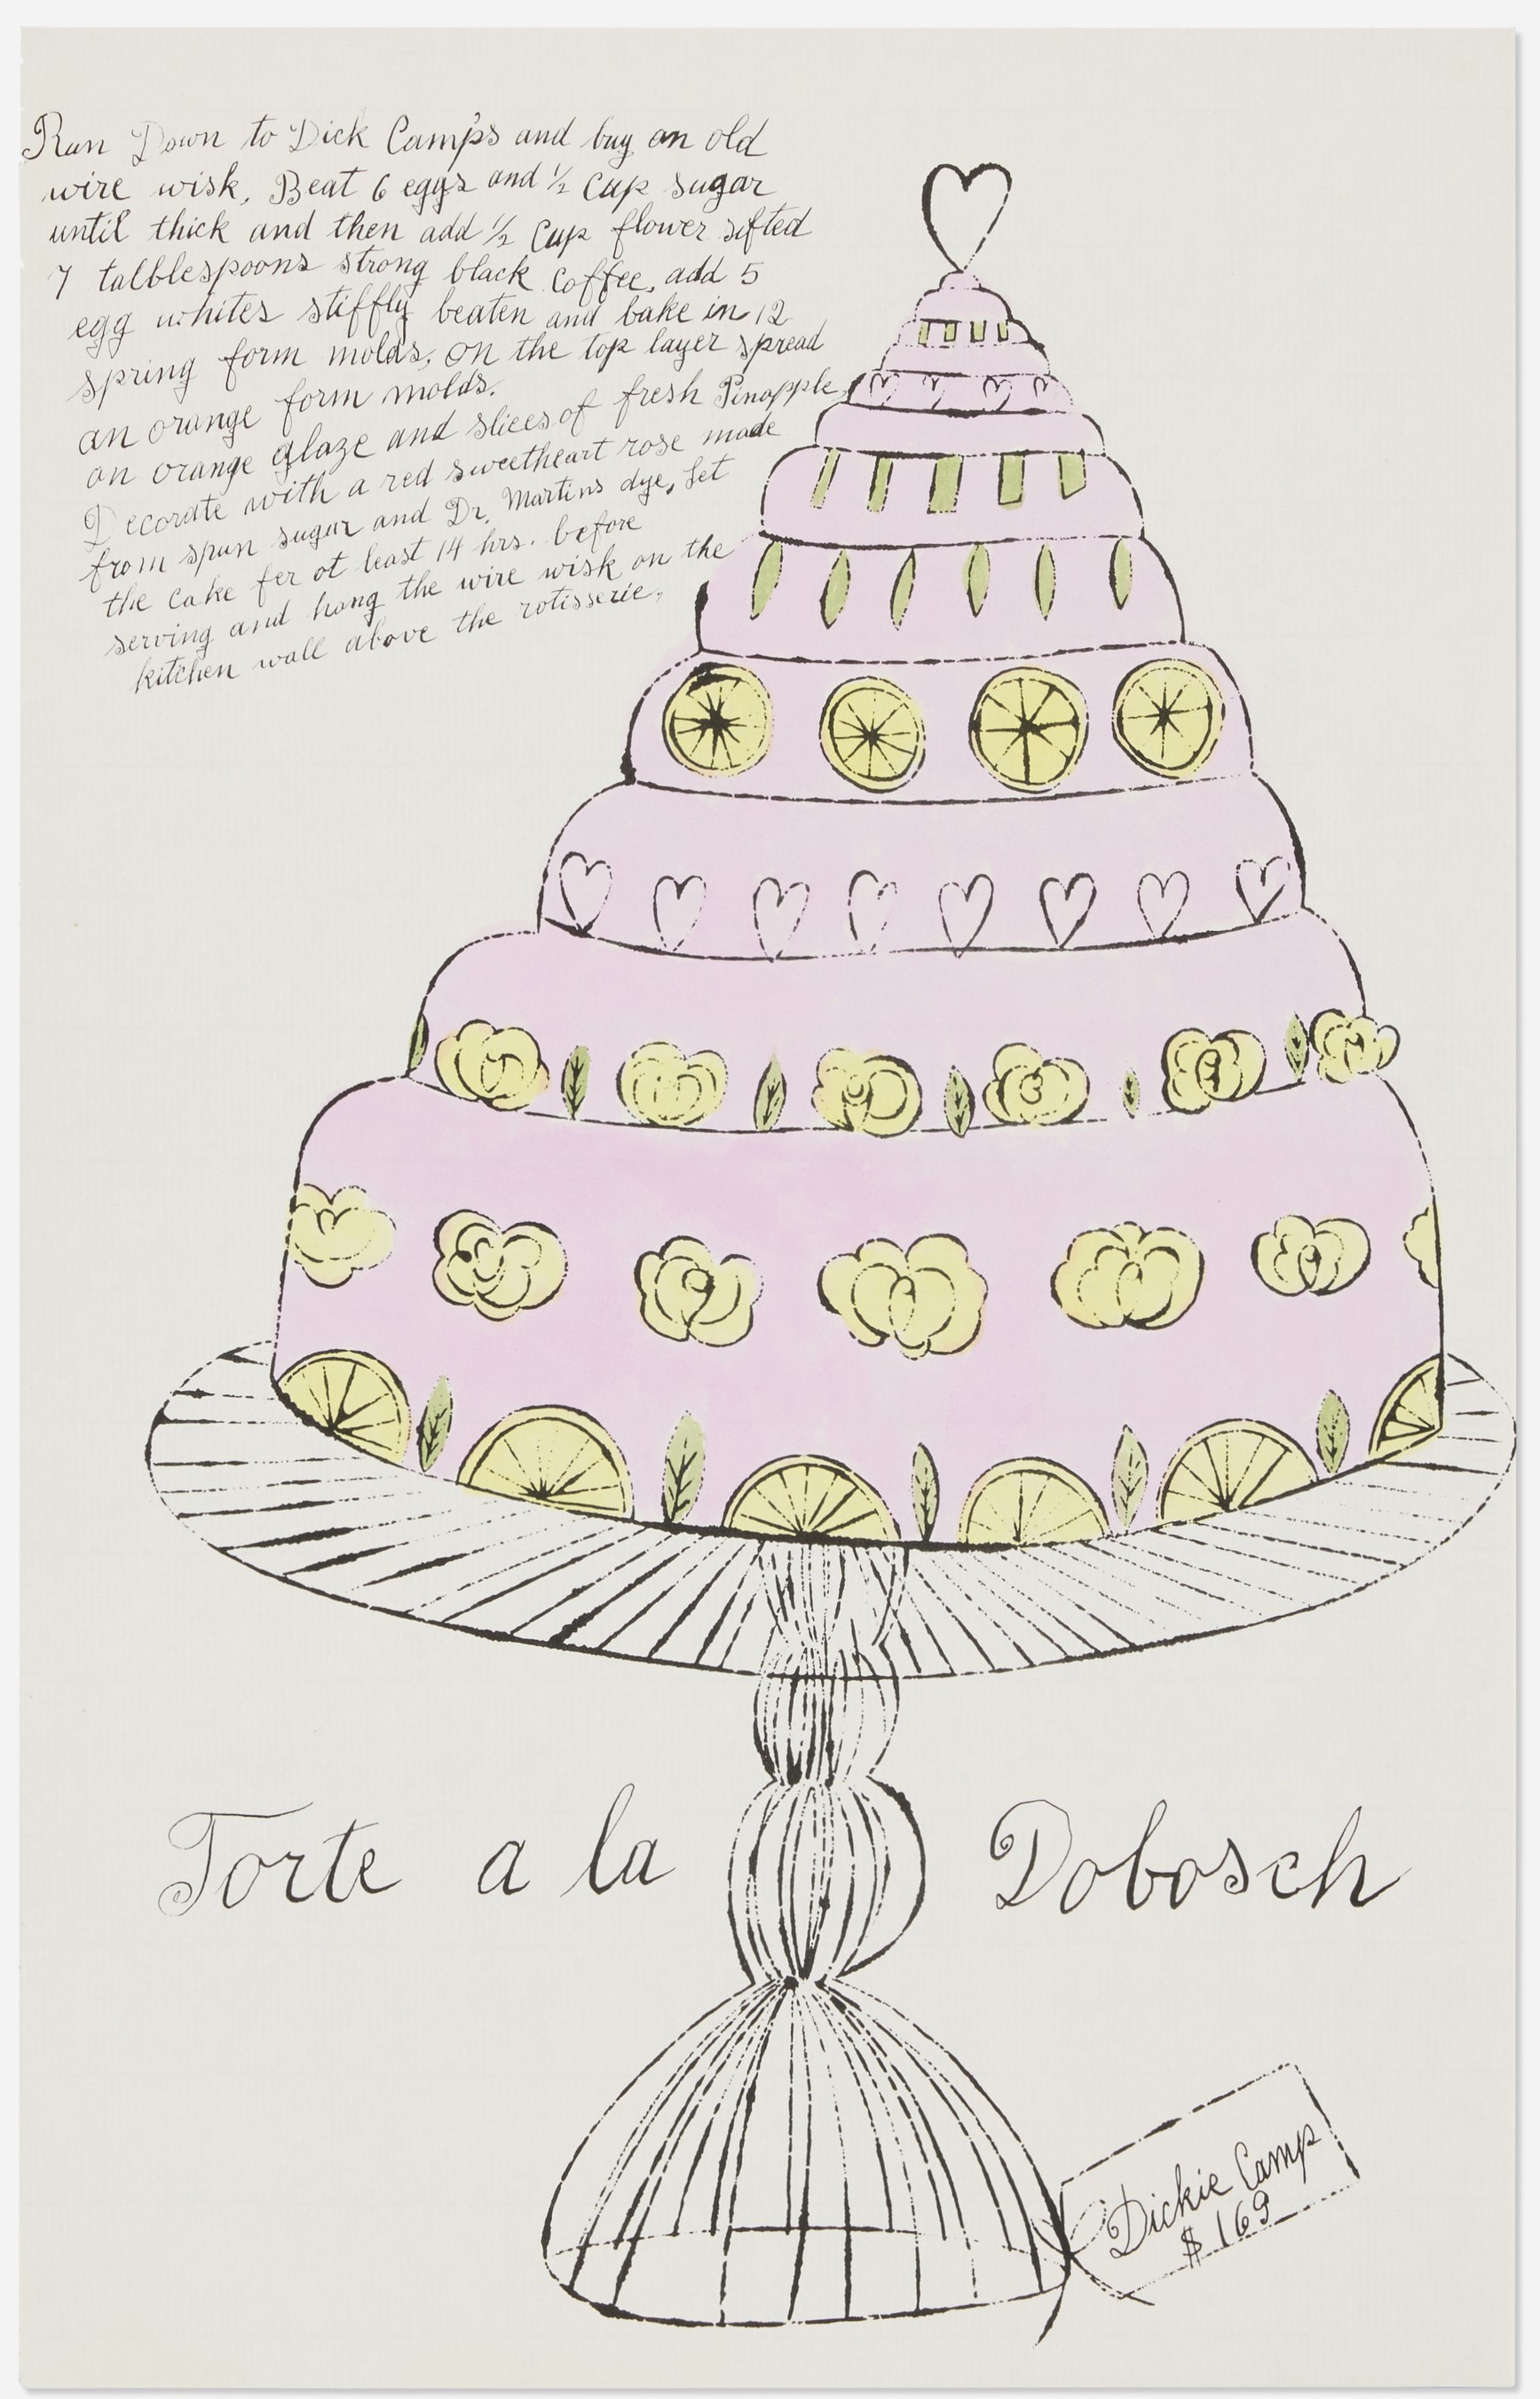 Run Down to Dick Camp's and buy an old
wire wisk, Beat 6 eggs and ½ Cup sugar
until thick and then add ½ Cup flower sifted
7 talblespoons strong black coffee, add 5
egg whites stiffly beaten and bake in 12
spring form molds, on the top layer spread
an orange form molds.
an orange glaze and slices of fresh Pinapple
Decorate with a red sweetheart rose made
from spun sugar and Dr. Martins dye, Let
the cake fer ot least 14 hrs. before
serving and hang the wire wisk on the
kitchen wall above the rotisserie,
Torte a la Dobosch
Dickie Camp
$ 169